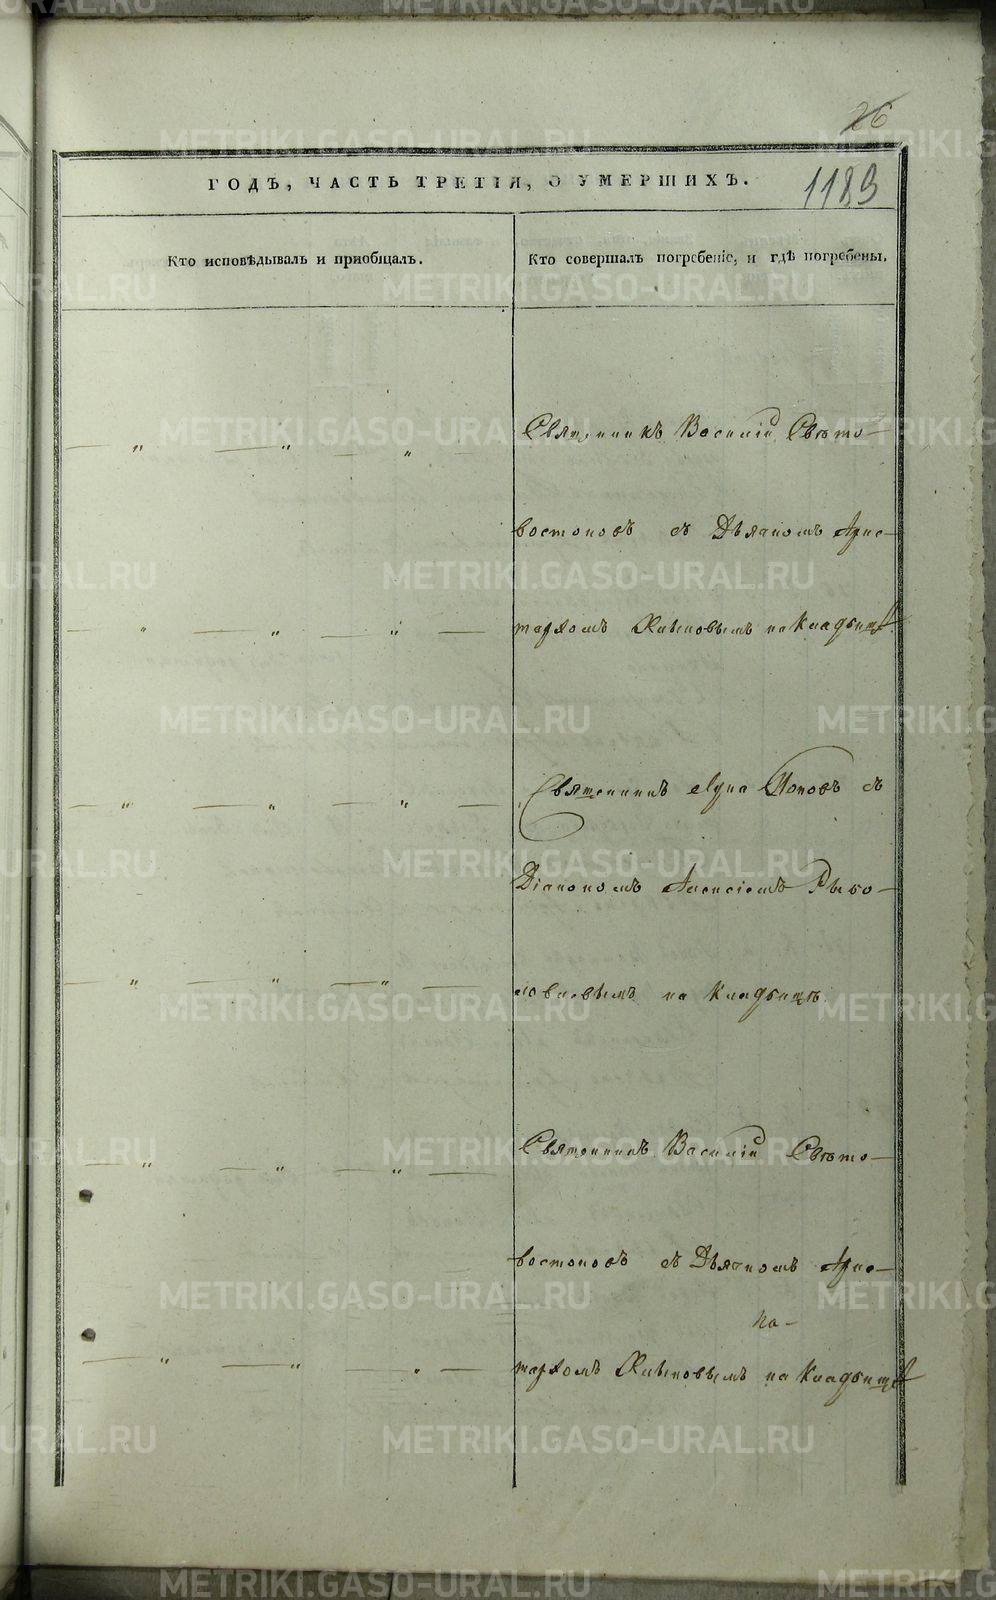 26
ГОДЪ, ЧАСТЬ ТРЕТІЯ, О УМЕРШИХЪ.
1189
Кто исповѣдывалъ и пріобщалъ.
Кто совершалъ погребеніе, и гдѣ погребены.
Священникъ Василій Свѣто-
востоковъ съ Дьячкомъ Арис-
тархомъ Хлыновымъ на Кладбищѣ
Священникъ Лука Поповъ съ
Діакономъ Алексіемъ Рыбо-
ловлевымъ на Кладбищѣ
Священникъ Василій Свѣто-
востоковъ съ Дьячкомъ Арис-
тархомъ Хлыновымъ на Кладбищѣ
METRIKI.GASO-URAL.RU